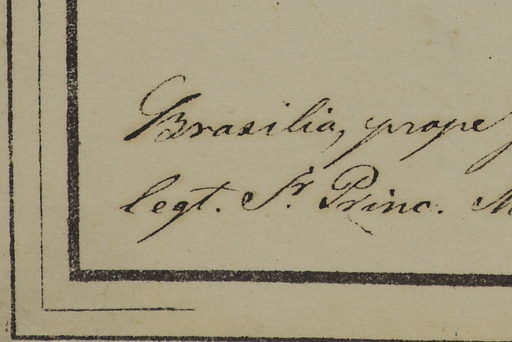 Brasilia, prope
legt. Sr. Princ. M